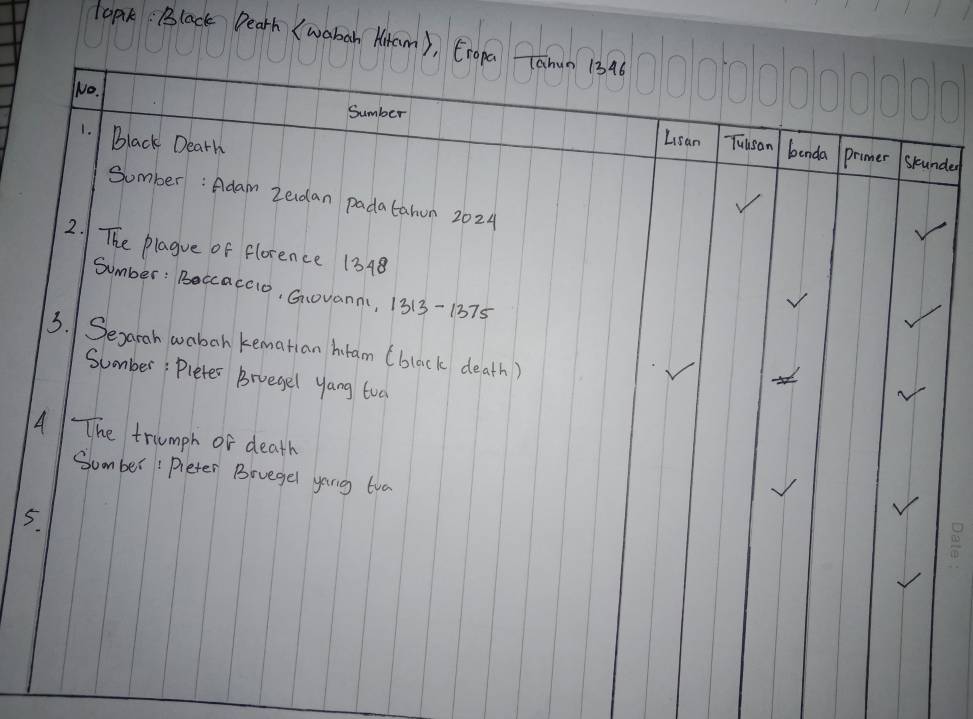 Topik : Black Death (wabah Hitam), Eropa Tahun 1346
No. Sumber Lisan Tulisan benda primer Skunder
1. Black Death ✓ ✓
Sumber : Adam Zeidan pada tahun 2024
2. The plague of florence 1348 ✓ ✓
Sumber : Boccaccio, Giovanni, 1313 - 1375
3. Sejarah wabah kematian hitam (black death) ✓ ✓
Sumber : Pieter Bruegel yang tua
4 The triumph of death ✓ ✓
Sumber : Pieter Bruegel yang tua
5. ✓
Date :